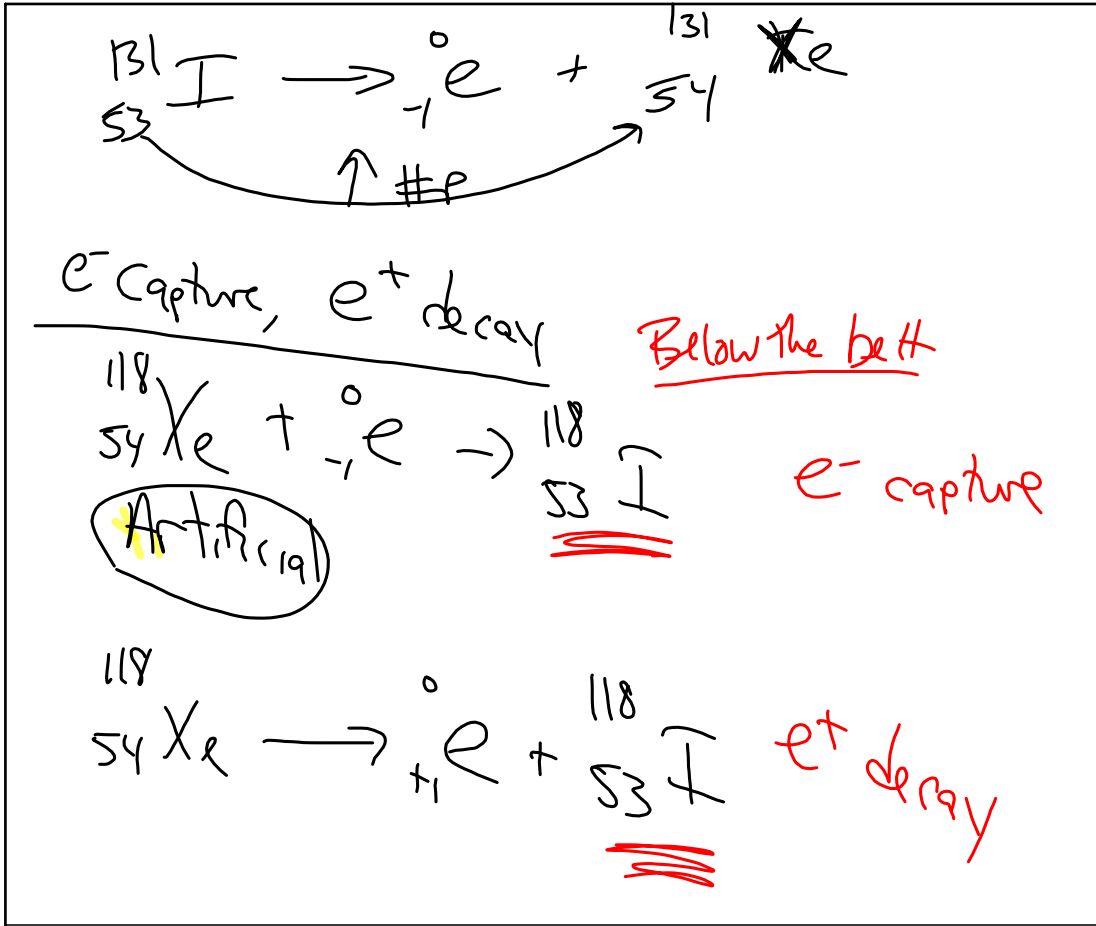 ¹³¹₅₃I ⟶ ⁰₋₁e + ¹³¹₅₄Xe
↑ #P
e⁻ capture, e⁺ decay
Below the belt
¹¹⁸₅₄Xe + ⁰₋₁e → ¹¹⁸₅₃I
e⁻ capture
Artificial
¹¹⁸₅₄Xe ⟶ ⁰₊₁e + ¹¹⁸₅₃I
e⁺ decay